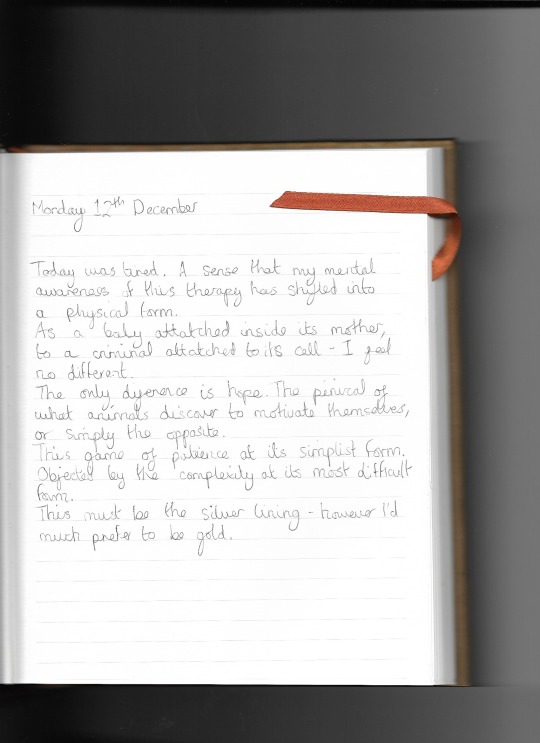 Monday 12th December
Today was tired. A sense that my mental
awareness of this therapy has shifted into
a physical form.
As a baby attatched inside its mother,
to a criminal attatched to its cell - I feel
no different.
The only dyerence is hope. The pinical of
what animals discover to motivate themselves,
or simply the opposite.
This game of patience at its simplist form.
Objected by the complexity at its most difficult
form.
This must be the silver lining - however I'd
much prefer to be gold.